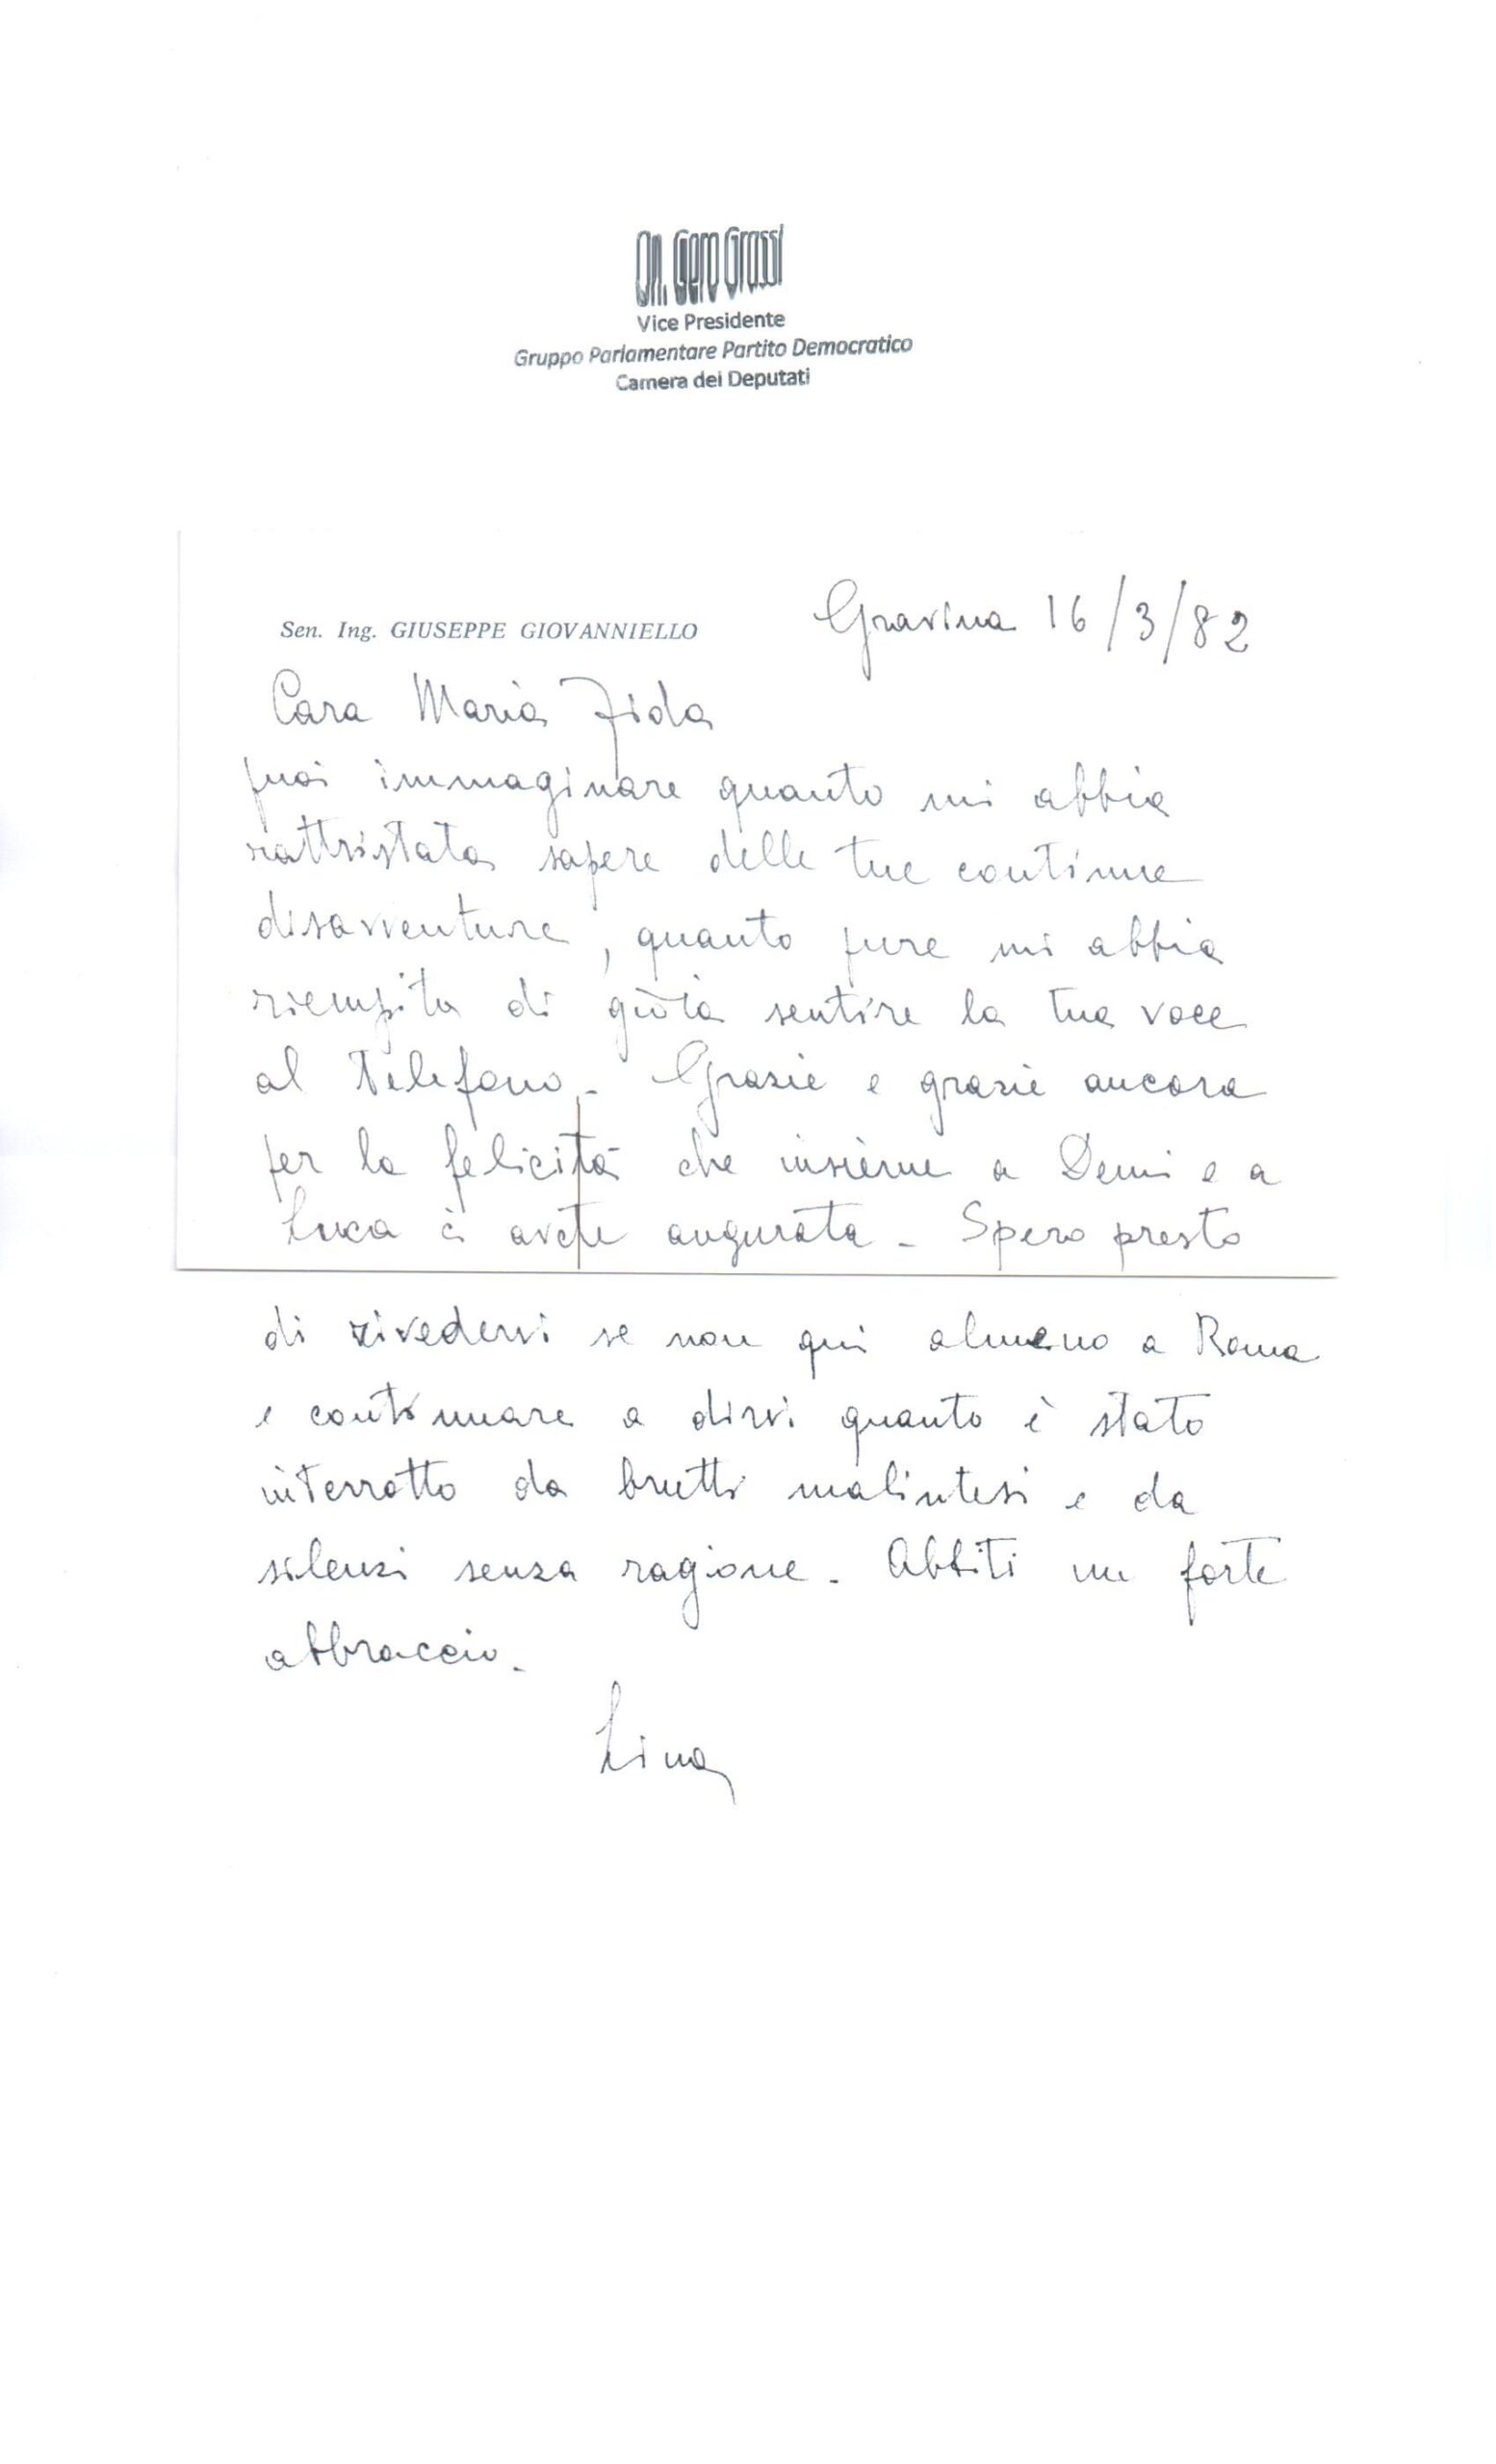 On. Gero Grassi
Vice Presidente
Gruppo Parlamentare Partito Democratico
Camera dei Deputati
Sen. Ing. GIUSEPPE GIOVANNIELLO
Gravina 16/3/82
Cara Maria Fida
puoi immaginare quanto mi abbia
rattristata sapere delle tue continue
disavventure, quanto pure mi abbia
riempita di gioia sentire la tua voce
al telefono - Grazie e grazie ancora
per la felicità che insieme a Demi e a
Luca ci avete augurata - Spero presto
di rivedervi se non qui almeno a Roma
e continuare a dirvi quanto è stato
interrotto da brutti malintesi e da
silenzi senza ragione. Abbiti un forte
abbraccio.
Lina